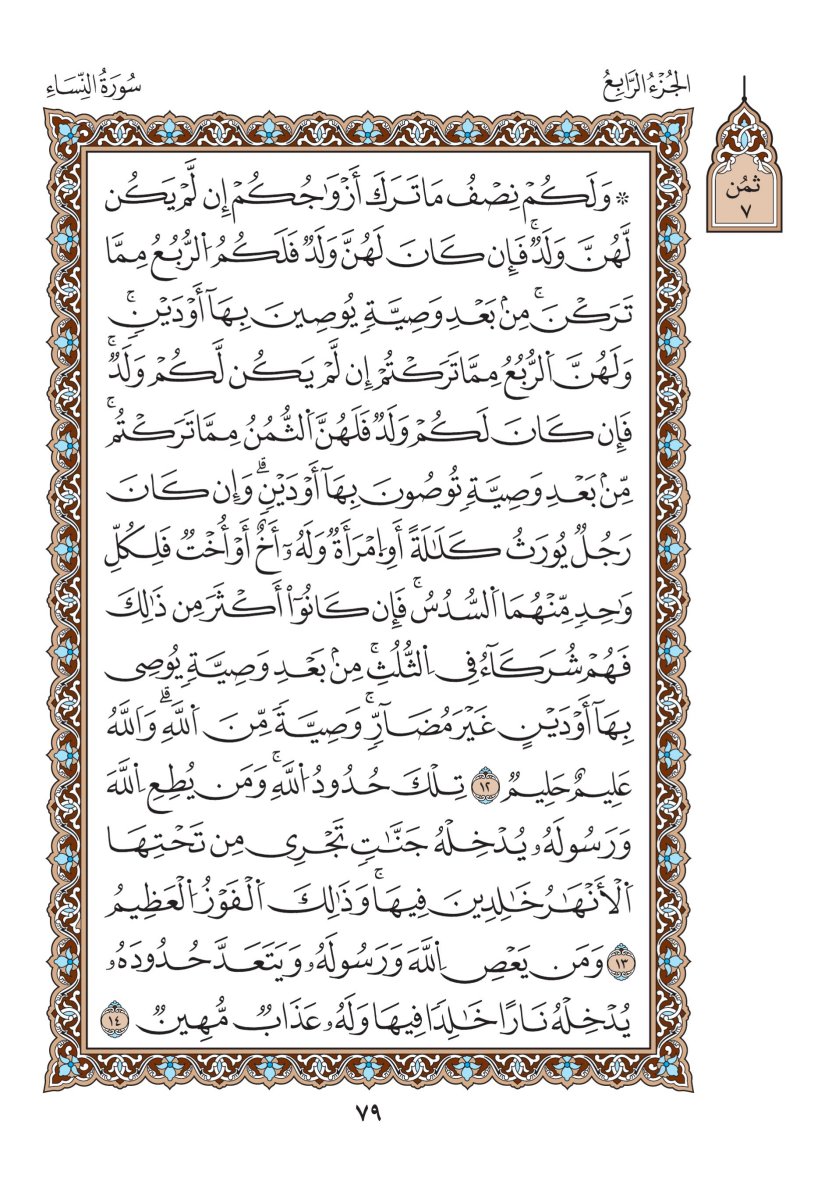 الجُزْءُ الرَّابِعُ
سُورَةُ النِّسَاءِ
ثُمُن
٧
۞ وَلَكُمْ نِصْفُ مَا تَرَكَ أَزْوَٰجُكُمْ إِن لَّمْ يَكُن
لَّهُنَّ وَلَدٌۚ فَإِن كَانَ لَهُنَّ وَلَدٌ فَلَكُمُ ٱلرُّبُعُ مِمَّا
تَرَكْنَۚ مِنۢ بَعْدِ وَصِيَّةٍ يُوصِينَ بِهَآ أَوْ دَيْنٍۚ
وَلَهُنَّ ٱلرُّبُعُ مِمَّا تَرَكْتُمْ إِن لَّمْ يَكُن لَّكُمْ وَلَدٌۚ
فَإِن كَانَ لَكُمْ وَلَدٌ فَلَهُنَّ ٱلثُّمُنُ مِمَّا تَرَكْتُمۚ
مِّنۢ بَعْدِ وَصِيَّةٍ تُوصُونَ بِهَآ أَوْ دَيْنٍۗ وَإِن كَانَ
رَجُلٌ يُورَثُ كَلَٰلَةً أَوِ ٱمْرَأَةٌ وَلَهُۥٓ أَخٌ أَوْ أُخْتٌ فَلِكُلِّ
وَٰحِدٍ مِّنْهُمَا ٱلسُّدُسُۚ فَإِن كَانُوٓا۟ أَكْثَرَ مِن ذَٰلِكَ
فَهُمْ شُرَكَآءُ فِى ٱلثُّلُثِۚ مِنۢ بَعْدِ وَصِيَّةٍ يُوصِى
بِهَآ أَوْ دَيْنٍ غَيْرَ مُضَآرٍّۚ وَصِيَّةً مِّنَ ٱللَّهِۗ وَٱللَّهُ
عَلِيمٌ حَلِيمٌ ١٢ تِلْكَ حُدُودُ ٱللَّهِۚ وَمَن يُطِعِ ٱللَّهَ
وَرَسُولَهُۥ يُدْخِلْهُ جَنَّٰتٍ تَجْرِى مِن تَحْتِهَا
ٱلْأَنْهَٰرُ خَٰلِدِينَ فِيهَاۚ وَذَٰلِكَ ٱلْفَوْزُ ٱلْعَظِيمُ
١٣ وَمَن يَعْصِ ٱللَّهَ وَرَسُولَهُۥ وَيَتَعَدَّ حُدُودَهُۥ
يُدْخِلْهُ نَارًا خَٰلِدًا فِيهَا وَلَهُۥ عَذَابٌ مُّهِينٌ ١٤
٧٩